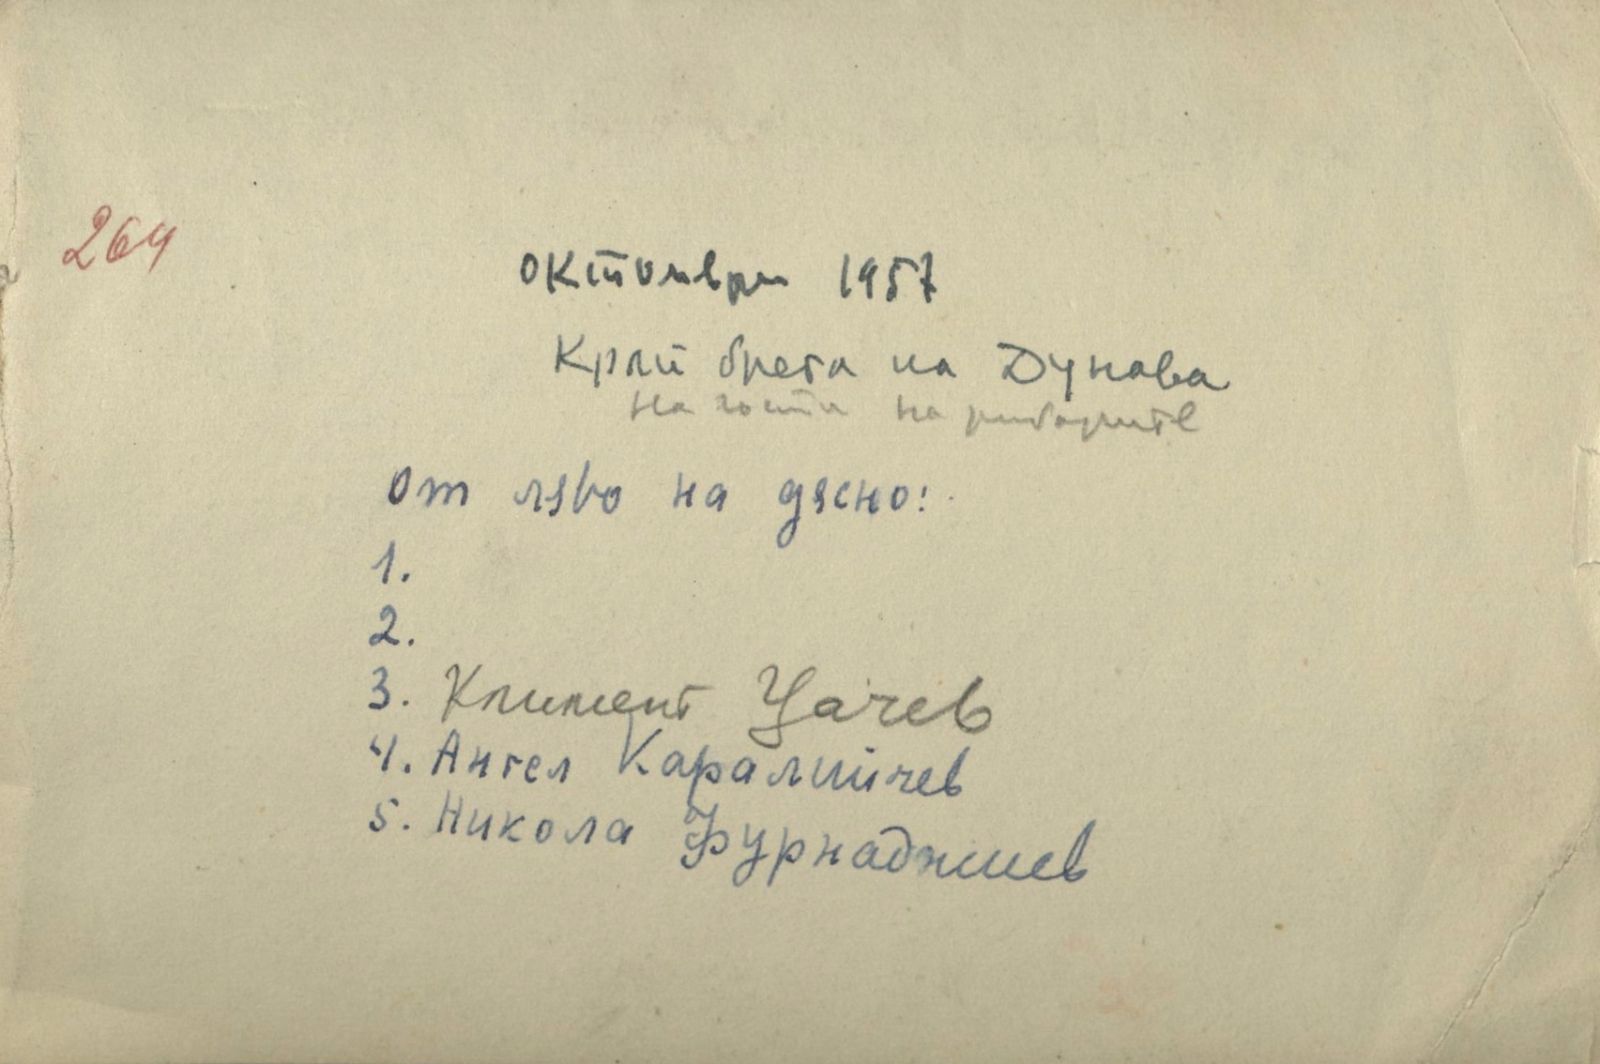 264
октомври 1957
Край брега на Дунава
на гости на рибарите
от ляво на дясно:
1.
2.
3. Климент Цачев
4. Ангел Каралийчев
5. Никола Фурнаджиев